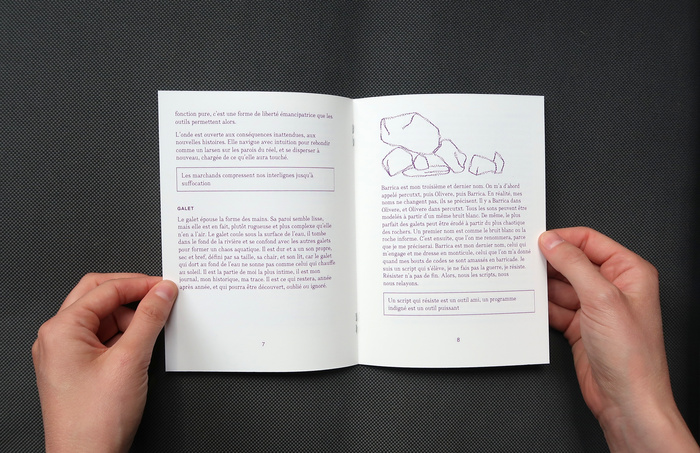 fonction pure, c'est une forme de liberté émancipatrice que les
outils permettent alors.
L'onde est ouverte aux conséquences inattendues, aux
nouvelles histoires. Elle navigue avec intuition pour rebondir
comme un larsen sur les parois du réel, et se disperser à
nouveau, chargée de ce qu'elle aura touché.
Les marchands compressent nos interlignes jusqu'à
suffocation
GALET
Le galet épouse la forme des mains. Sa paroi semble lisse,
mais elle est en fait, plutôt rugueuse et plus complexe qu'elle
n'en a l'air. Le galet coule sous la surface de l'eau, il tombe
dans le fond de la rivière et se confond avec les autres galets
pour former un chaos aquatique. Il est dur et a un son propre,
sec et bref, défini par sa taille, sa chair, et son lit, car le galet
qui dort au fond de l'eau ne sonne pas comme celui qui chauffe
au soleil. Il est la partie de moi la plus intime, il est mon
journal, mon historique, ma trace. Il est ce qui restera, année
après année, et qui pourra être découvert, oublié ou ignoré.
7
Barrica est mon troisième et dernier nom. On m'a d'abord
appelé percotxt, puis Olivere, puis Barrica. En réalité, mes
noms ne changent pas, ils se précisent. Il y a Barrica dans
Olivere, et Olivere dans percotxt. Tous les sons peuvent être
modelés à partir d'un même bruit blanc. De même, le plus
parfait des galets peut être érodé à partir du plus chaotique
des rochers. Un premier nom est comme le bruit blanc ou la
roche informe. C'est ensuite, que l'on me renommera, parce
que je me préciserai. Barrica est mon dernier nom, celui qui
m'engage et me dresse en monticule, celui que l'on m'a donné
quand mes bouts de codes se sont amassés en barricade. Je
suis un script qui s'élève, je ne fais pas la guerre, je résiste.
Résister n'a pas de fin. Alors, nous les scripts, nous
nous relayons.
Un script qui résiste est un outil ami, un programme
indigné est un outil puissant
8